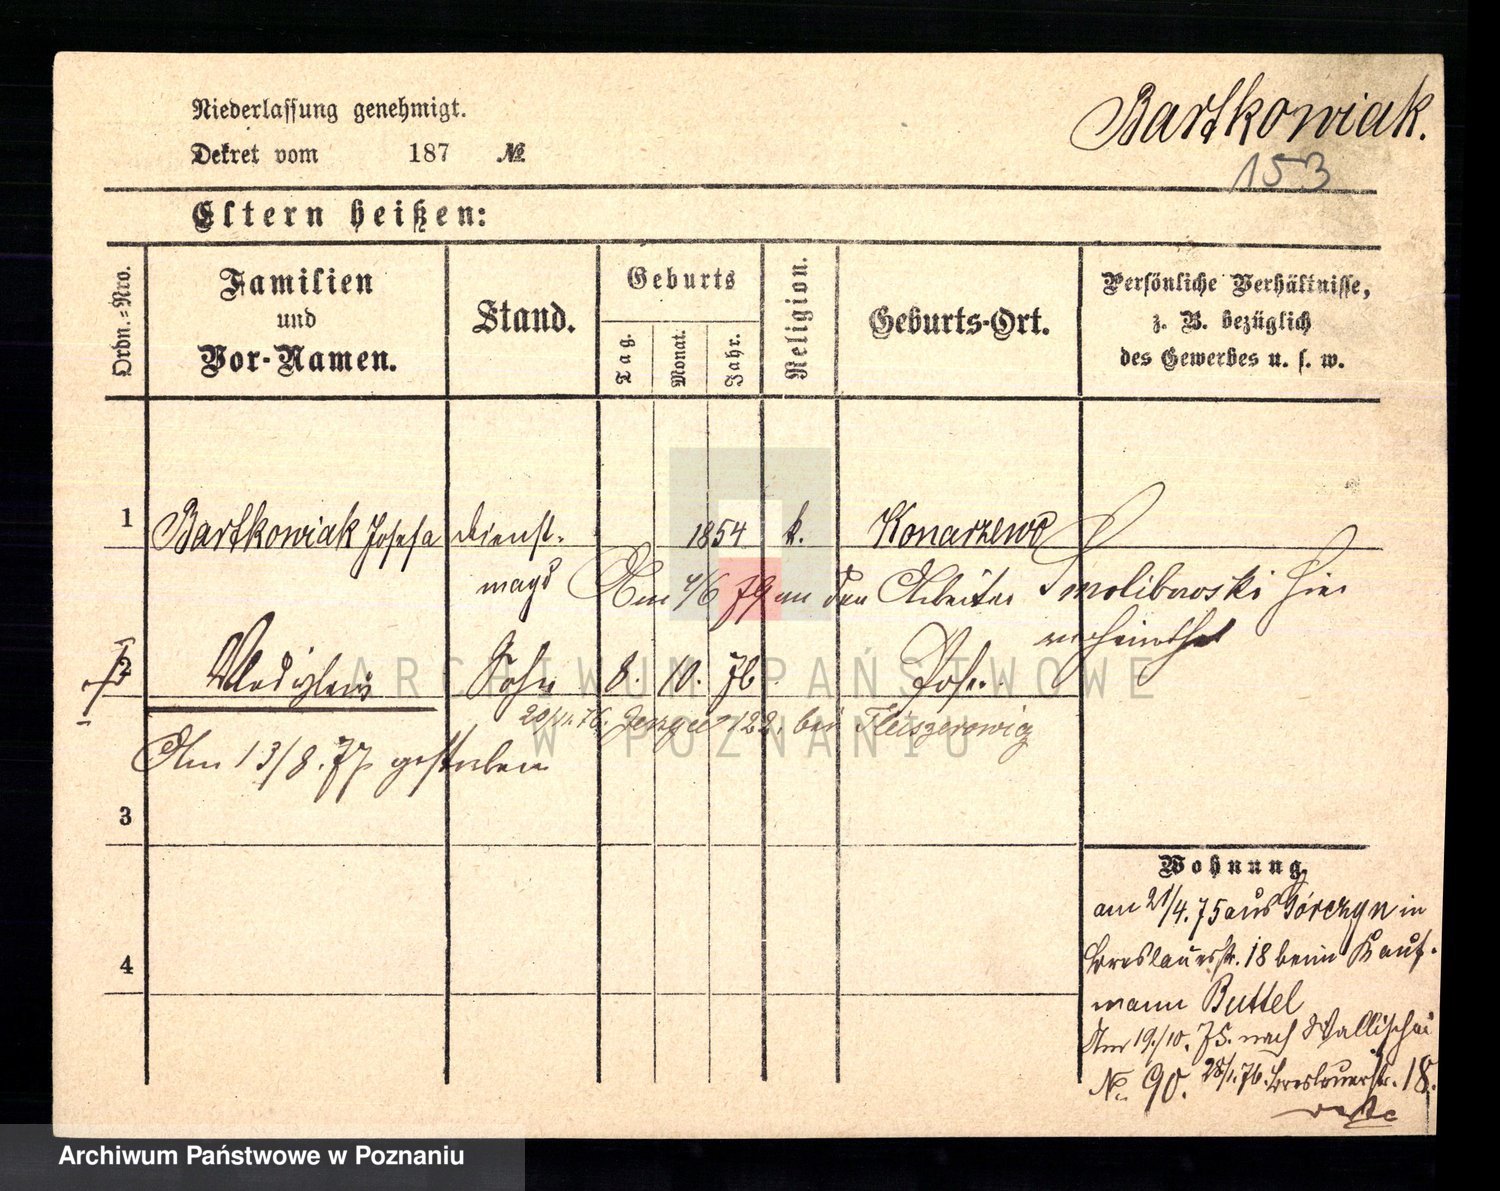 Niederlassung genehmigt.
Dekret vom 187 №
Bartkowiak.
153
Eltern heißen:
Ordn.=Nro.
Familien
und
Vor-Namen.
Stand.
Geburts
Tag.
Monat.
Jahr.
Religion.
Geburts-Ort.
Persönliche Verhältnisse,
z. B. bezüglich
des Gewerbes u. s. w.
1 Bartkowiak Josefa Dienst- 1854 k. Konarzewo
magd Am 4/6 79 an den Arbeiter Smolibowski hier
verheirathet
2 Wladislaus Sohn 8. 10. 76 Posen
20/11. 76. 122. bei Fleiszerowicz
Am 13/8. 77 gestorben
3
4
Wohnung
am 21/4. 75 aus Górczyn in
Breslauerstr. 18 beim Kauf-
mann Buttel
Am 19./10. 75. nach Wallischei
No. 90. 28/1. 76. Breslauerstr. 18.
ARCHIWUM PAŃSTWOWE
W POZNANIU
Archiwum Państwowe w Poznaniu